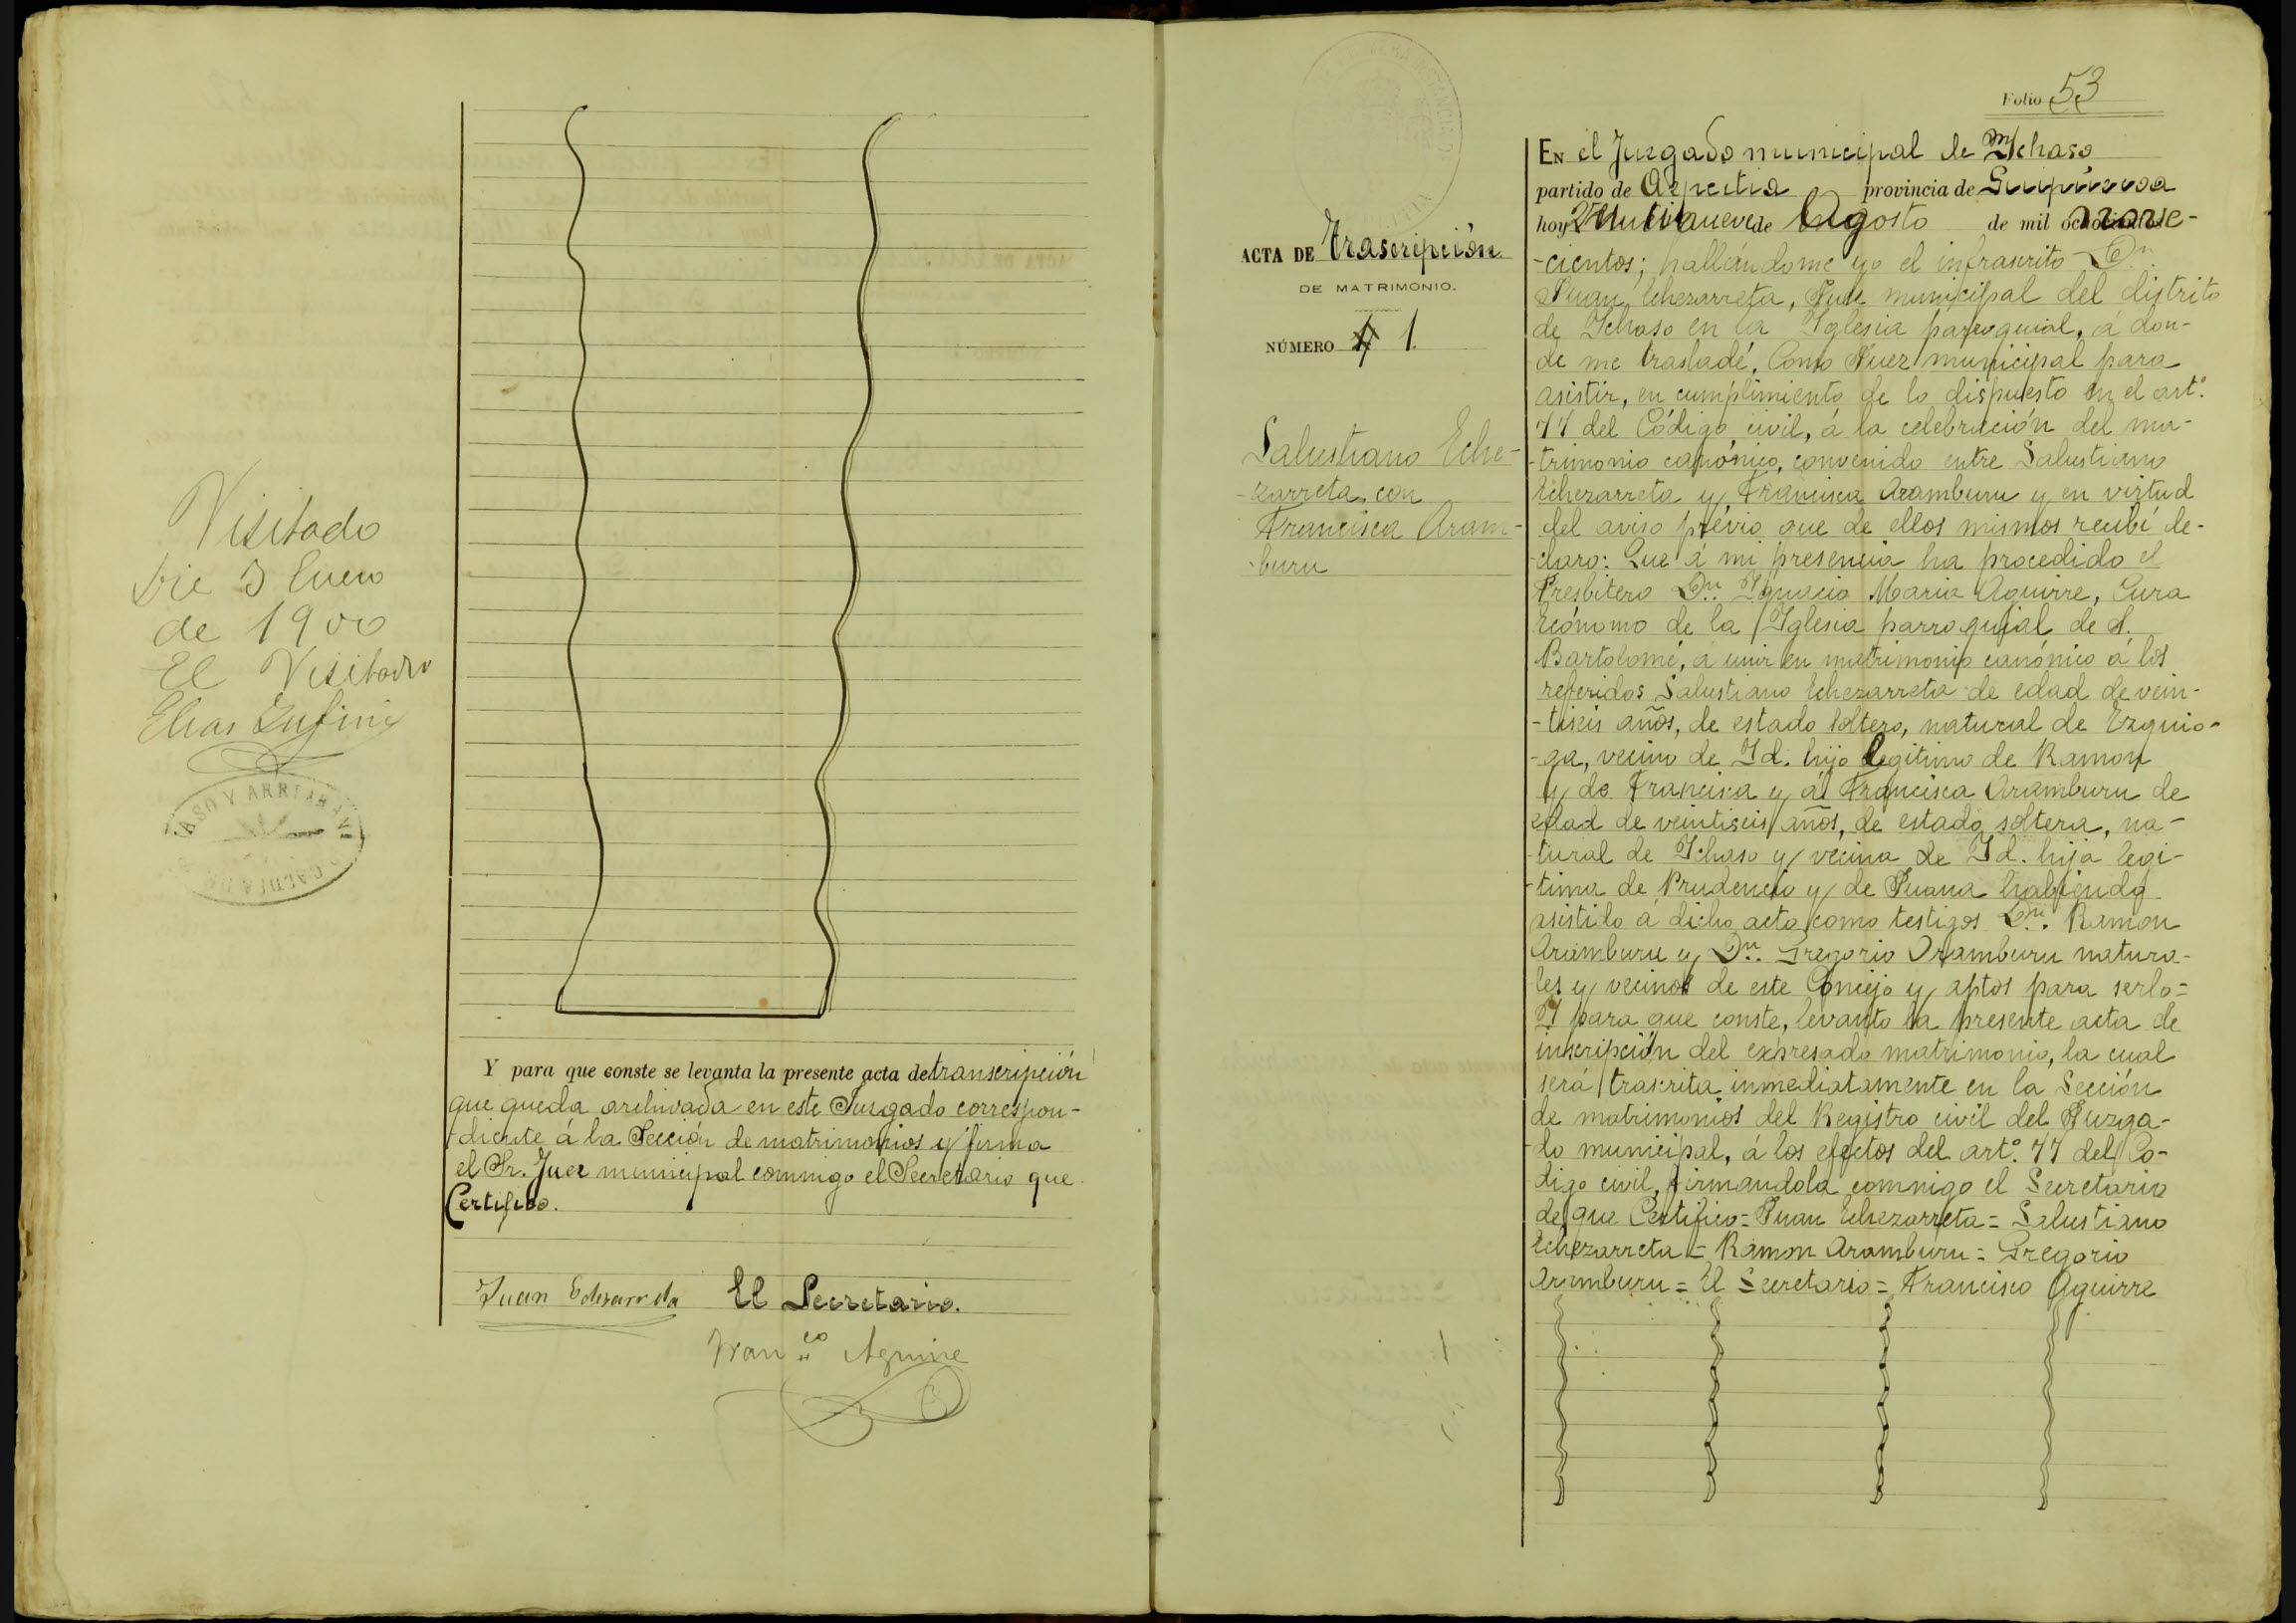 Visitado
hoy 3 Enero
de 1900
El Visitador
Elias
ASO Y ARRIARAN
Y para que conste se levanta la presente acta de transcripción
que queda archivada en este Juzgado correspon-
diente á la Sección de matrimonios y firma
el Sr. Juez municipal conmigo el Secretario que
Certifico.
Juan Echezarreta El Secretario.
Franco Aguirre
Folio 53
ACTA DE Trascripción
DE MATRIMONIO.
NÚMERO 1
Salustiano Eche-
-zarreta con
Francisca Aram-
-buru
En el Juzgado municipal de Ychaso
partido de Azpeitia provincia de Guipúzcoa
hoy Veintinueve de Agosto de mil ochocientos nove-
-cientos; hallándome yo el infrascrito Dn.
Juan Echezarreta, Juez municipal del distrito
de Ychaso en la Yglesia parroquial, á don-
de me trasladé, Como Juez municipal para
asistir, en cumplimiento de lo dispuesto en el art.º
77 del Código civil, á la celebración del ma-
-trimonio canónico, convenido entre Salustiano
Echezarreta y Francisca Aramburu y en virtud
del aviso prévio que de ellos mismos recibí de-
-claro: Que á mi presencia ha procedido el
Presbitero Dn. Ygnacio Maria Aguirre, Cura
Ecónomo de la Yglesia parroquial de S.
Bartolomé, á unir en matrimonio canónico á los
referidos Salustiano Echezarreta de edad de vein-
-tiseis años, de estado soltero, natural de Ezquio-
-ga, vecino de Yd. hijo legitimo de Ramon
y de Francisca y á Francisca Aramburu de
edad de veintiseis años, de estado soltera, na-
tural de Ychaso y vecina de Yd. hija legi-
-tima de Prudencio y de Juana habiendo
asistido á dicho acto como testigos Dn. Ramon
Aramburu y Dn. Gregorio Aramburu natura-
les y vecinos de este Concejo y aptos para serlo=
Y para que conste, levanto la presente acta de
inscripción del expresado matrimonio, la cual
será trascrita inmediatamente en la Sección
de matrimonios del Registro civil del Juzga-
-do municipal, á los efectos del art.º 77 del Co-
-digo civil, firmandola conmigo el Secretario
de que Certifico= Juan Echezarreta= Salustiano
Echezarreta= Ramon Aramburu= Gregorio
Aramburu= El Secretario= Francisco Aguirre